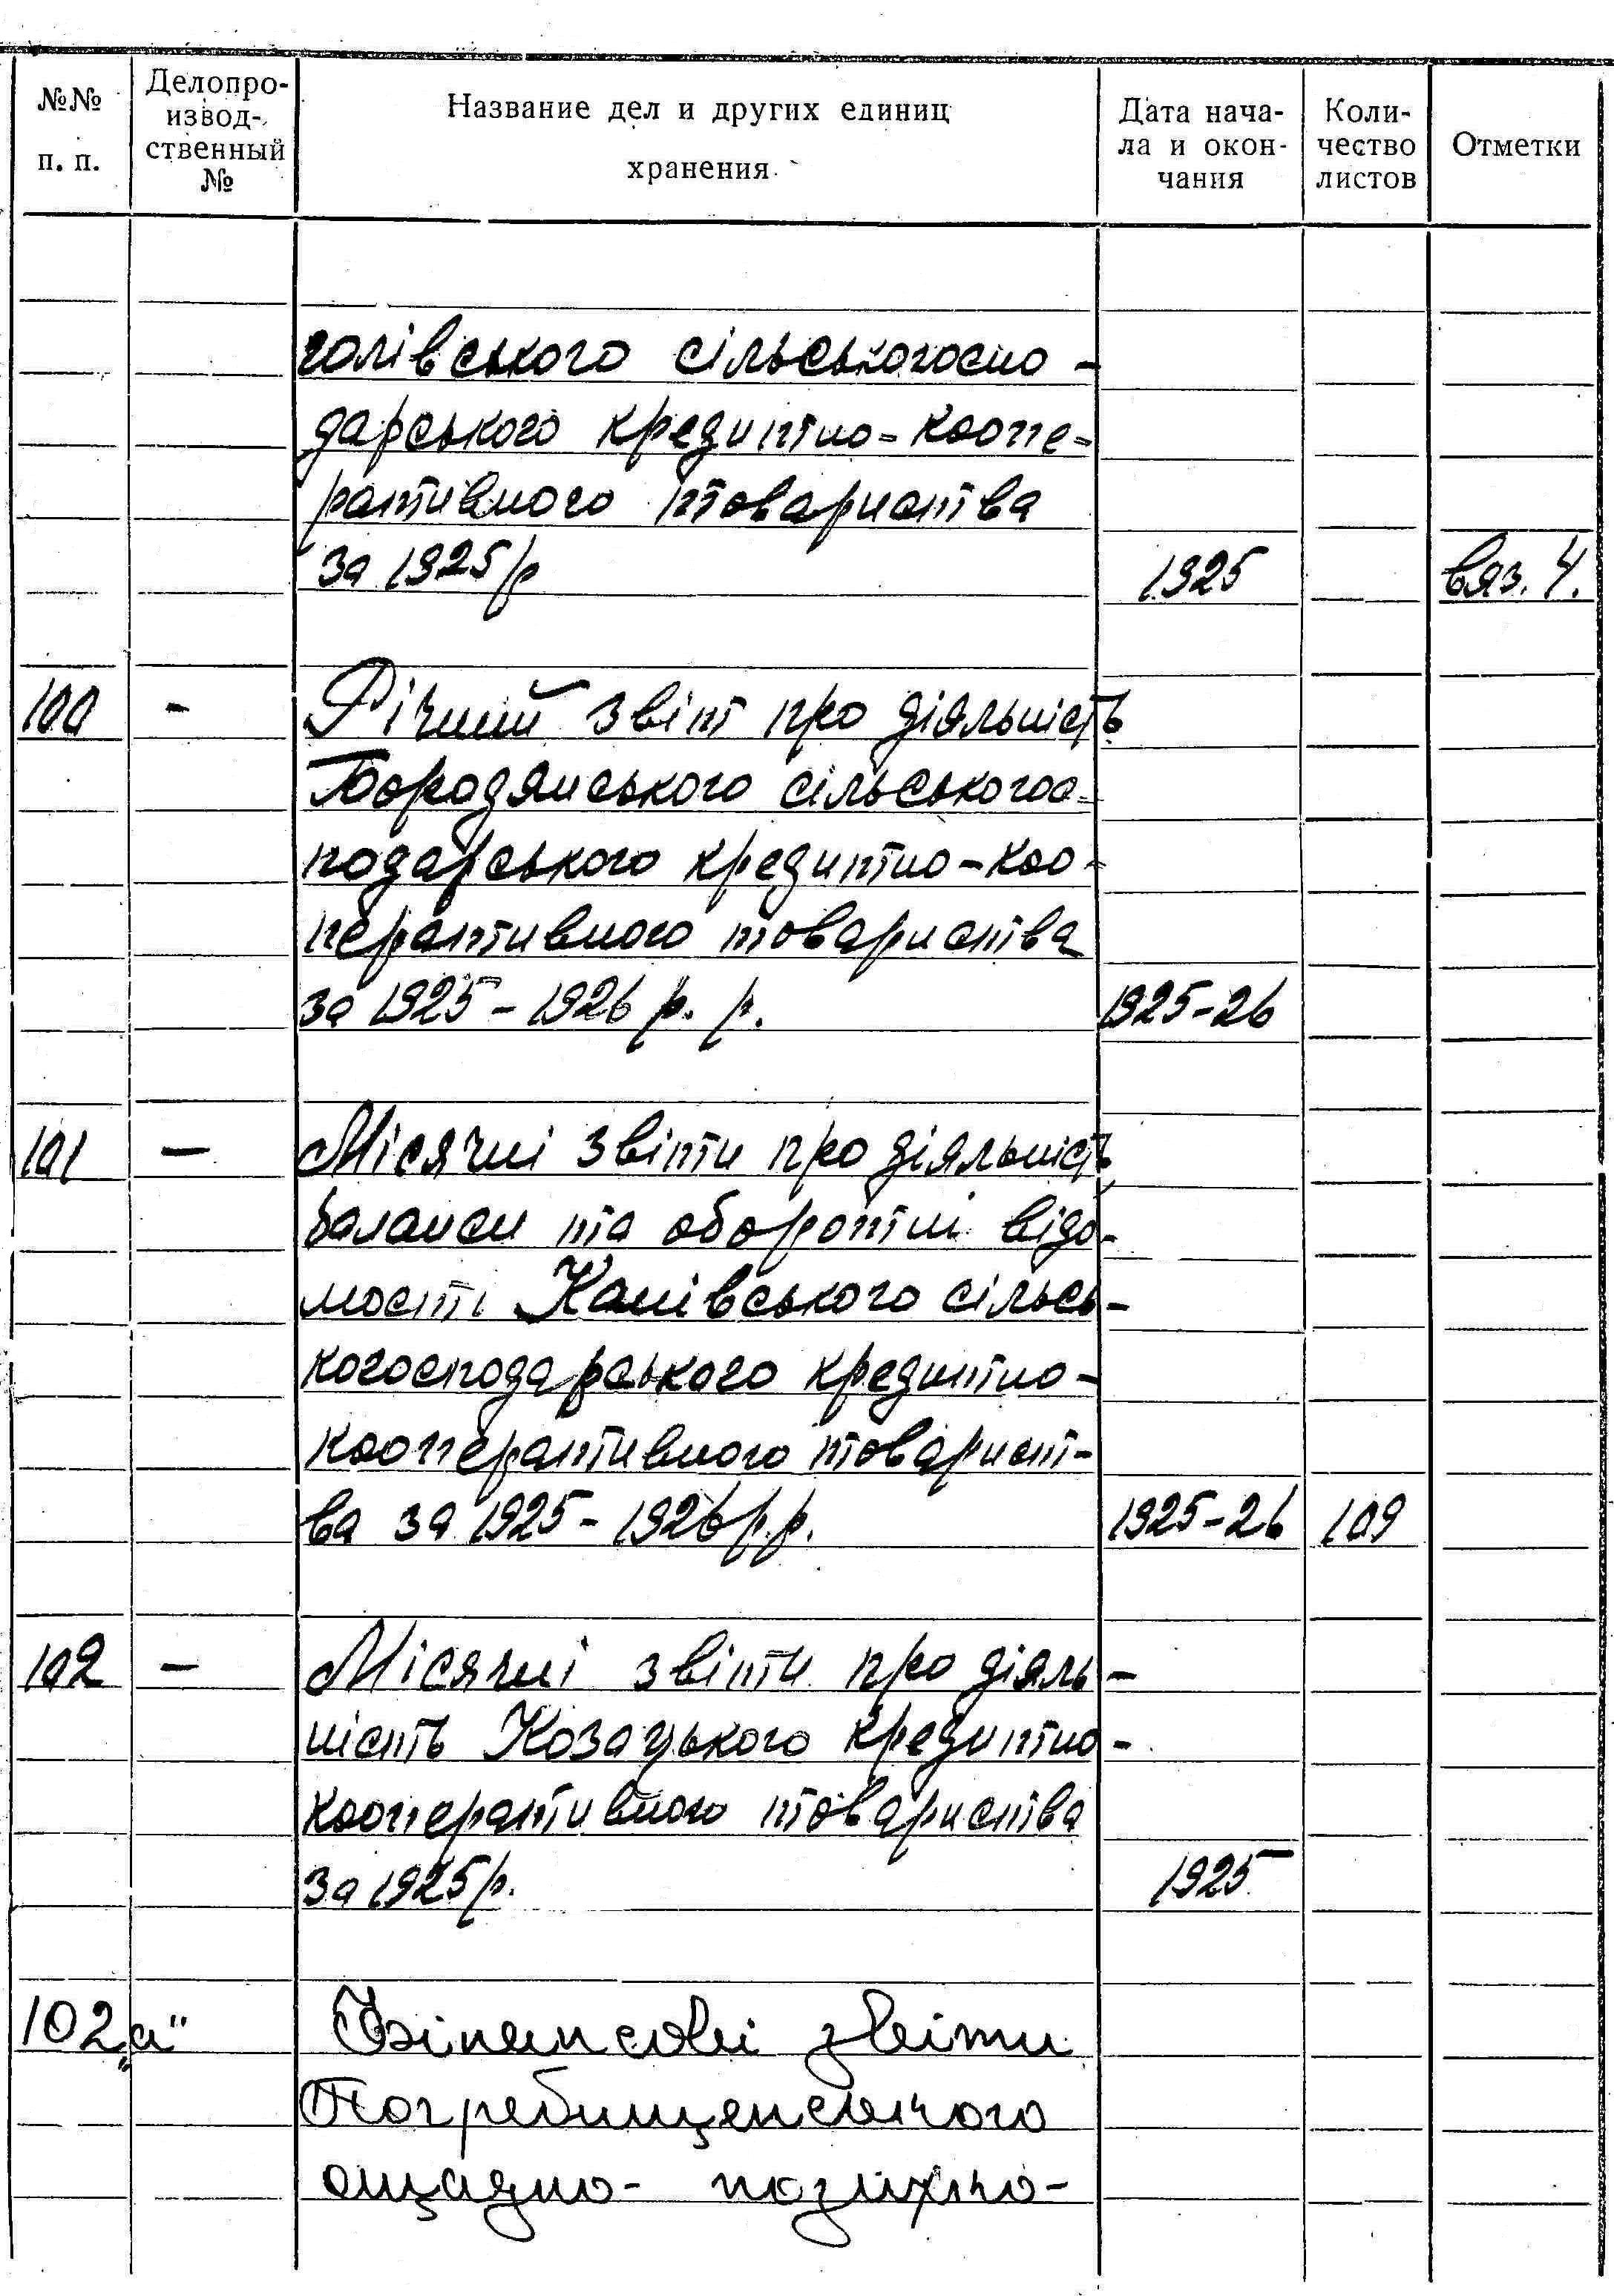 №№ п. п.
Делопро-
извод-
ственный
№
Название дел и других единиц
хранения
Дата нача-
ла и окон-
чания
Коли-
чество
листов
Отметки
голівського сільськогоспо-
дарського кредитно-коопе-
ративного товариства
за 1925 р 1925 вяз. 4.
100 - Річний звіт про діяльність
Бородянського сільськогос-
подарського кредитно-коо-
перативного товариства
за 1925-1926 р. р. 1925-26
101 - Місячні звіти про діяльність,
баланси та оборотні відо-
мості Канівського сільсь-
когосподарського кредитно-
кооперативного товарист-
ва за 1925-1926 р.р. 1925-26 109
102 - Місячні звіти про діяль-
ність Козацького кредитно-
кооперативного товариства
за 1925 р. 1925
102 „а" Фінансові звіти
Погребищенського
ощадно- позичко-